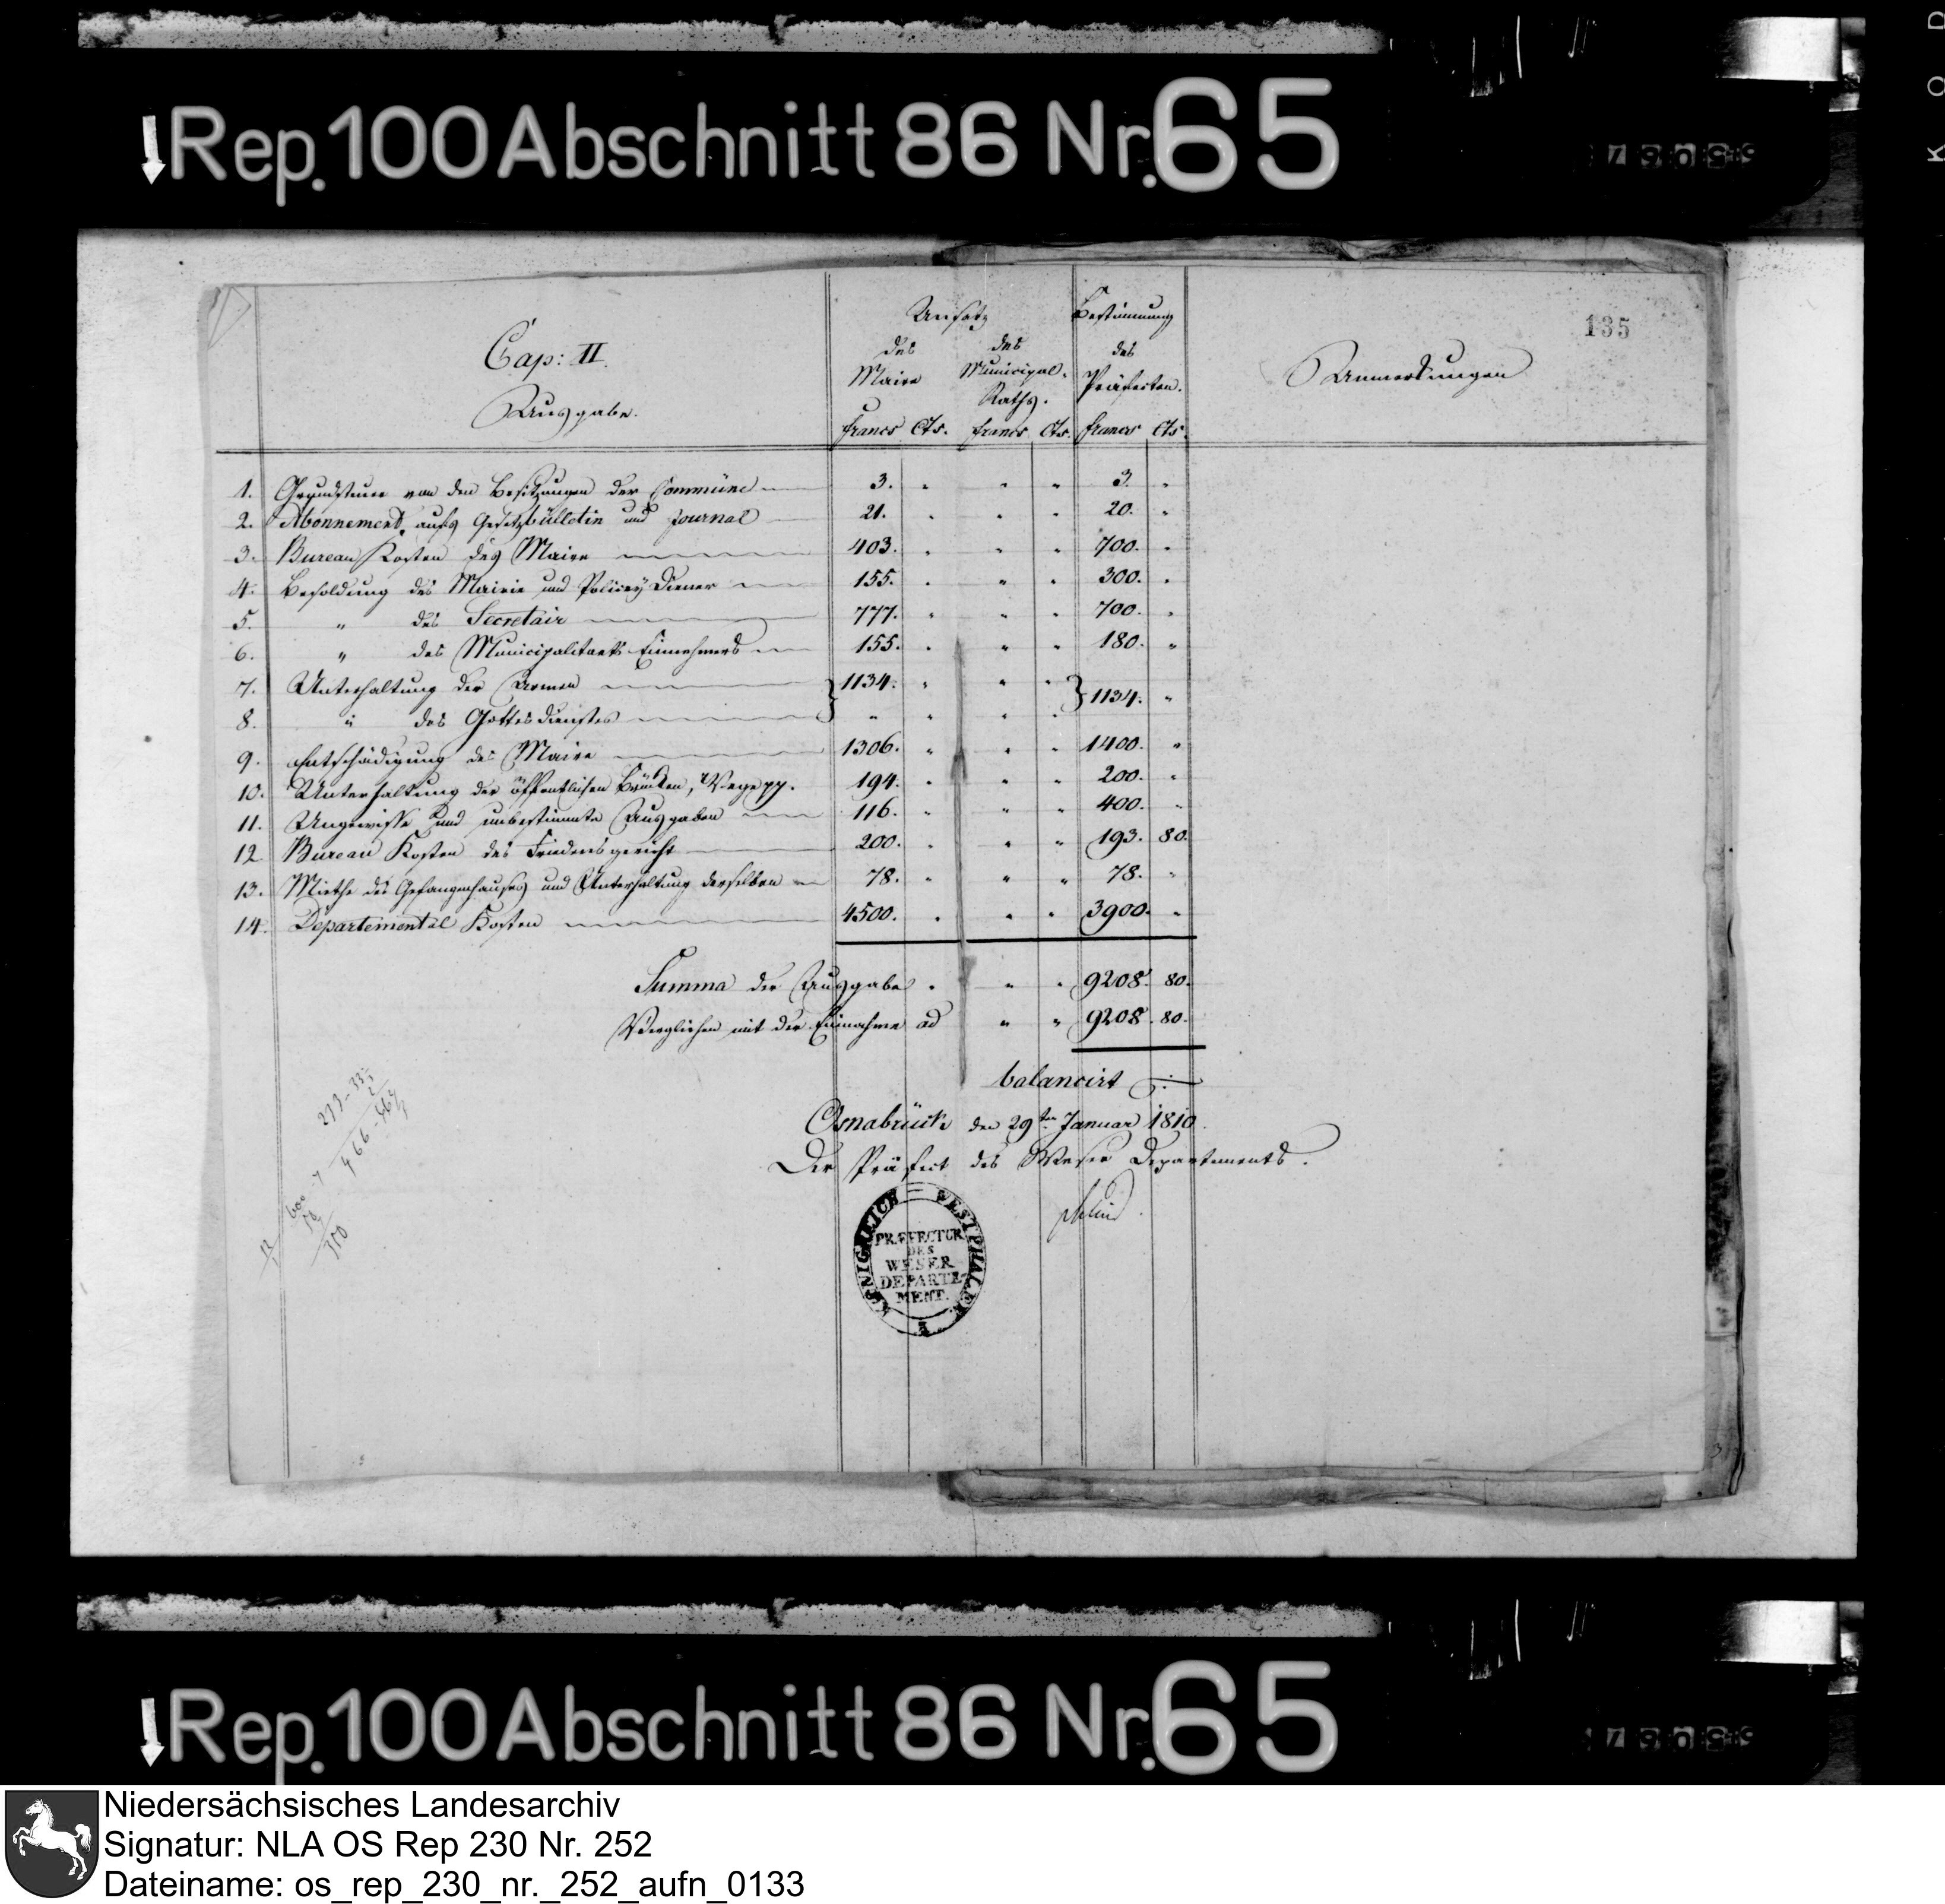 Rep. 100 Abschnitt 86 Nr. 65
135
Cap: II.
Ausgabe.
Ansatz
des Maire
des Municipal-Raths.
Bestimmung des Präfecten.
Anmerkungen
francs Cts. francs Cts. francs Cts.
1. Grundsteuer von den Besitzungen der Commüne 3. " " " 3. "
2. Abonnement aufs Gesetzbülletin und Journal 21. " " " 20. "
3. Bureau Kosten des Maire 403. " " " 700. "
4. Besoldung des Mairie und Policey Diener 155. " " " 300. "
5. " des Secretair 777. " " " 700. "
6. " des Municipalitaets Einnehmers 155. " " " 180. "
7. Unterhaltung der Armen 1134. " " " } 1134. "
8. " des Gottesdienstes " " " "
9. Entschädigung des Maire 1306. " " " 1400. "
10. Unterhaltung der öffentlichen Brücken, Wege pp. 194. " " " 200. "
11. Ungewisse und unbestimmte Ausgaben 116. " " " 400. "
12 Bureau Kosten des Friedensgericht 200. " " " 193. 80.
13. Miethe des Gefangenhauses und Unterhaltung desselben 78. " " " 78. "
14. Departemental Kosten 4500. " " " 3900. "
Summa der Ausgabe . " " 9208. 80.
Verglichen mit der Einnahme ad " " 9208. 80.
balancirt
Osnabrück den 29ten Januar 1810.
Der Präfect des Weser Departements.
KÖNIGREICH WESTPHALEN
PRÆFECTUR
DES
WESER
DEPARTE-
MENT.
Rep. 100 Abschnitt 86 Nr. 65
Niedersächsisches Landesarchiv
Signatur: NLA OS Rep 230 Nr. 252
Dateiname: os_rep_230_nr._252_aufn_0133